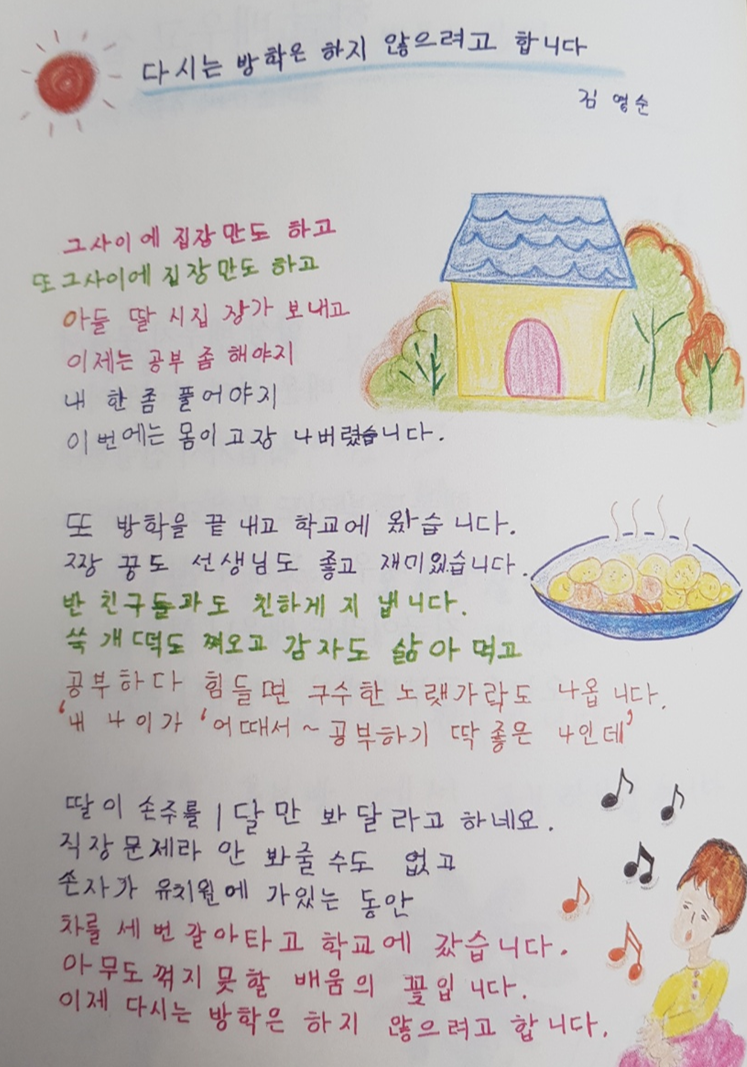 다시는 방학은 하지 않으려고 합니다
김영순
그사이에 집장만도 하고
또 그사이에 집장만도 하고
아들 딸 시집 장가 보내고
이제는 공부 좀 해야지
내 한 좀 풀어야지
이번에는 몸이 고장 나버렸습니다.
또 방학을 끝내고 학교에 왔습니다.
짝꿍도 선생님도 좋고 재미있습니다.
반 친구들과도 친하게 지냅니다.
쑥개떡도 쪄오고 감자도 삶아 먹고
공부하다 힘들면 구수한 노랫가락도 나옵니다.
'내 나이가 '어때서~공부하기 딱 좋은 나인데'
딸이 손주를 1달만 봐달라고 하네요.
직장문제라 안 봐줄 수도 없고
손자가 유치원에 가있는 동안
차를 세 번 갈아타고 학교에 갔습니다.
아무도 꺾지 못할 배움의 꽃입니다.
이제 다시는 방학은 하지 않으려고 합니다.